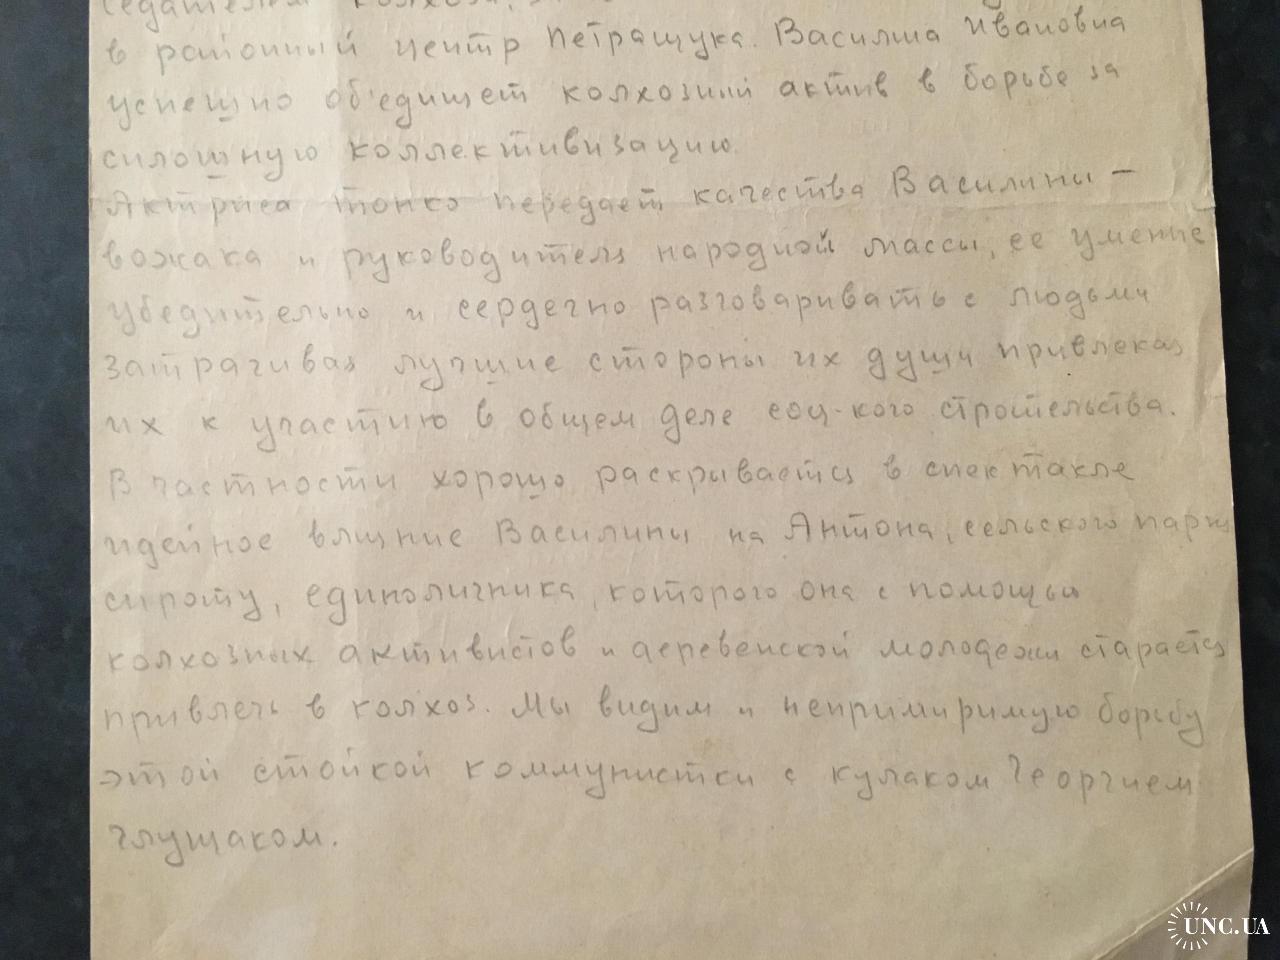 седателем колхоза,
в районный центр Петращука. Василина Ивановна
успешно об'единяет колхозный актив в борьбе за
сплошную коллективизацию.
Актриса тонко передает качества Василины –
вожака и руководителя народной массы, ее умение
убедительно и сердечно разговаривать с людьми
затрагивая лучшие стороны их души привлекая
их к участию в общем деле соц-кого строительства.
В частности хорошо раскрывается в спектакле
идейное влияние Василины на Антона, сельского парня
сироту, единоличника, которого она с помощью
колхозных активистов и деревенской молодежи старается
привлечь в колхоз. Мы видим и непримиримую борьбу
этой стойкой коммунистки с кулаком Георгием
Глущаком.
UNC.UA